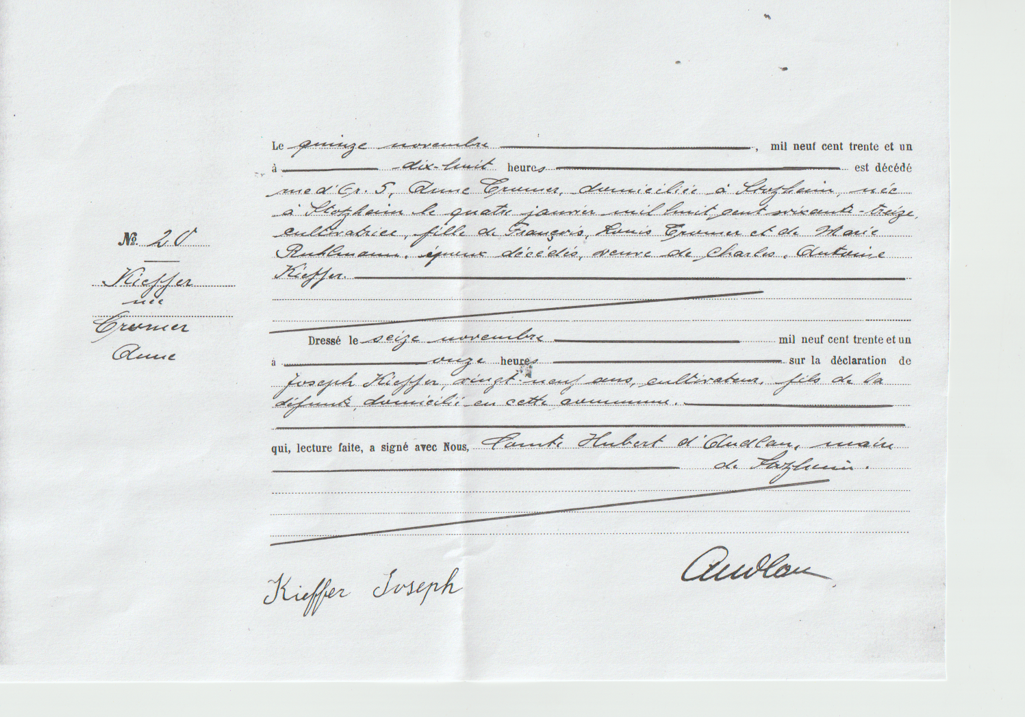 Le quinze novembre, mil neuf cent trente et un
à dix-huit heures est décédé
rue d'Or. 5, Anne Cromer, domiciliée à Stotzheim, née
à Stotzheim le quatre janvier mil huit cent soixante-treize,
cultivatrice, fille de François, Louis Cromer et de Marie
Ruhlmann, époux décédés, veuve de Charles, Antoine
Kieffer.
№ 20
Kieffer
née
Cromer
Anne
Dressé le seize novembre mil neuf cent trente et un
à onze heures sur la déclaration de
Joseph Kieffer, vingt-neuf ans, cultivateur, fils de la
défunte, domicilié en cette commune.
qui, lecture faite, a signé avec Nous, Comte Hubert d'Andlau, maire
de Stotzheim.
Kieffer Joseph
Andlau